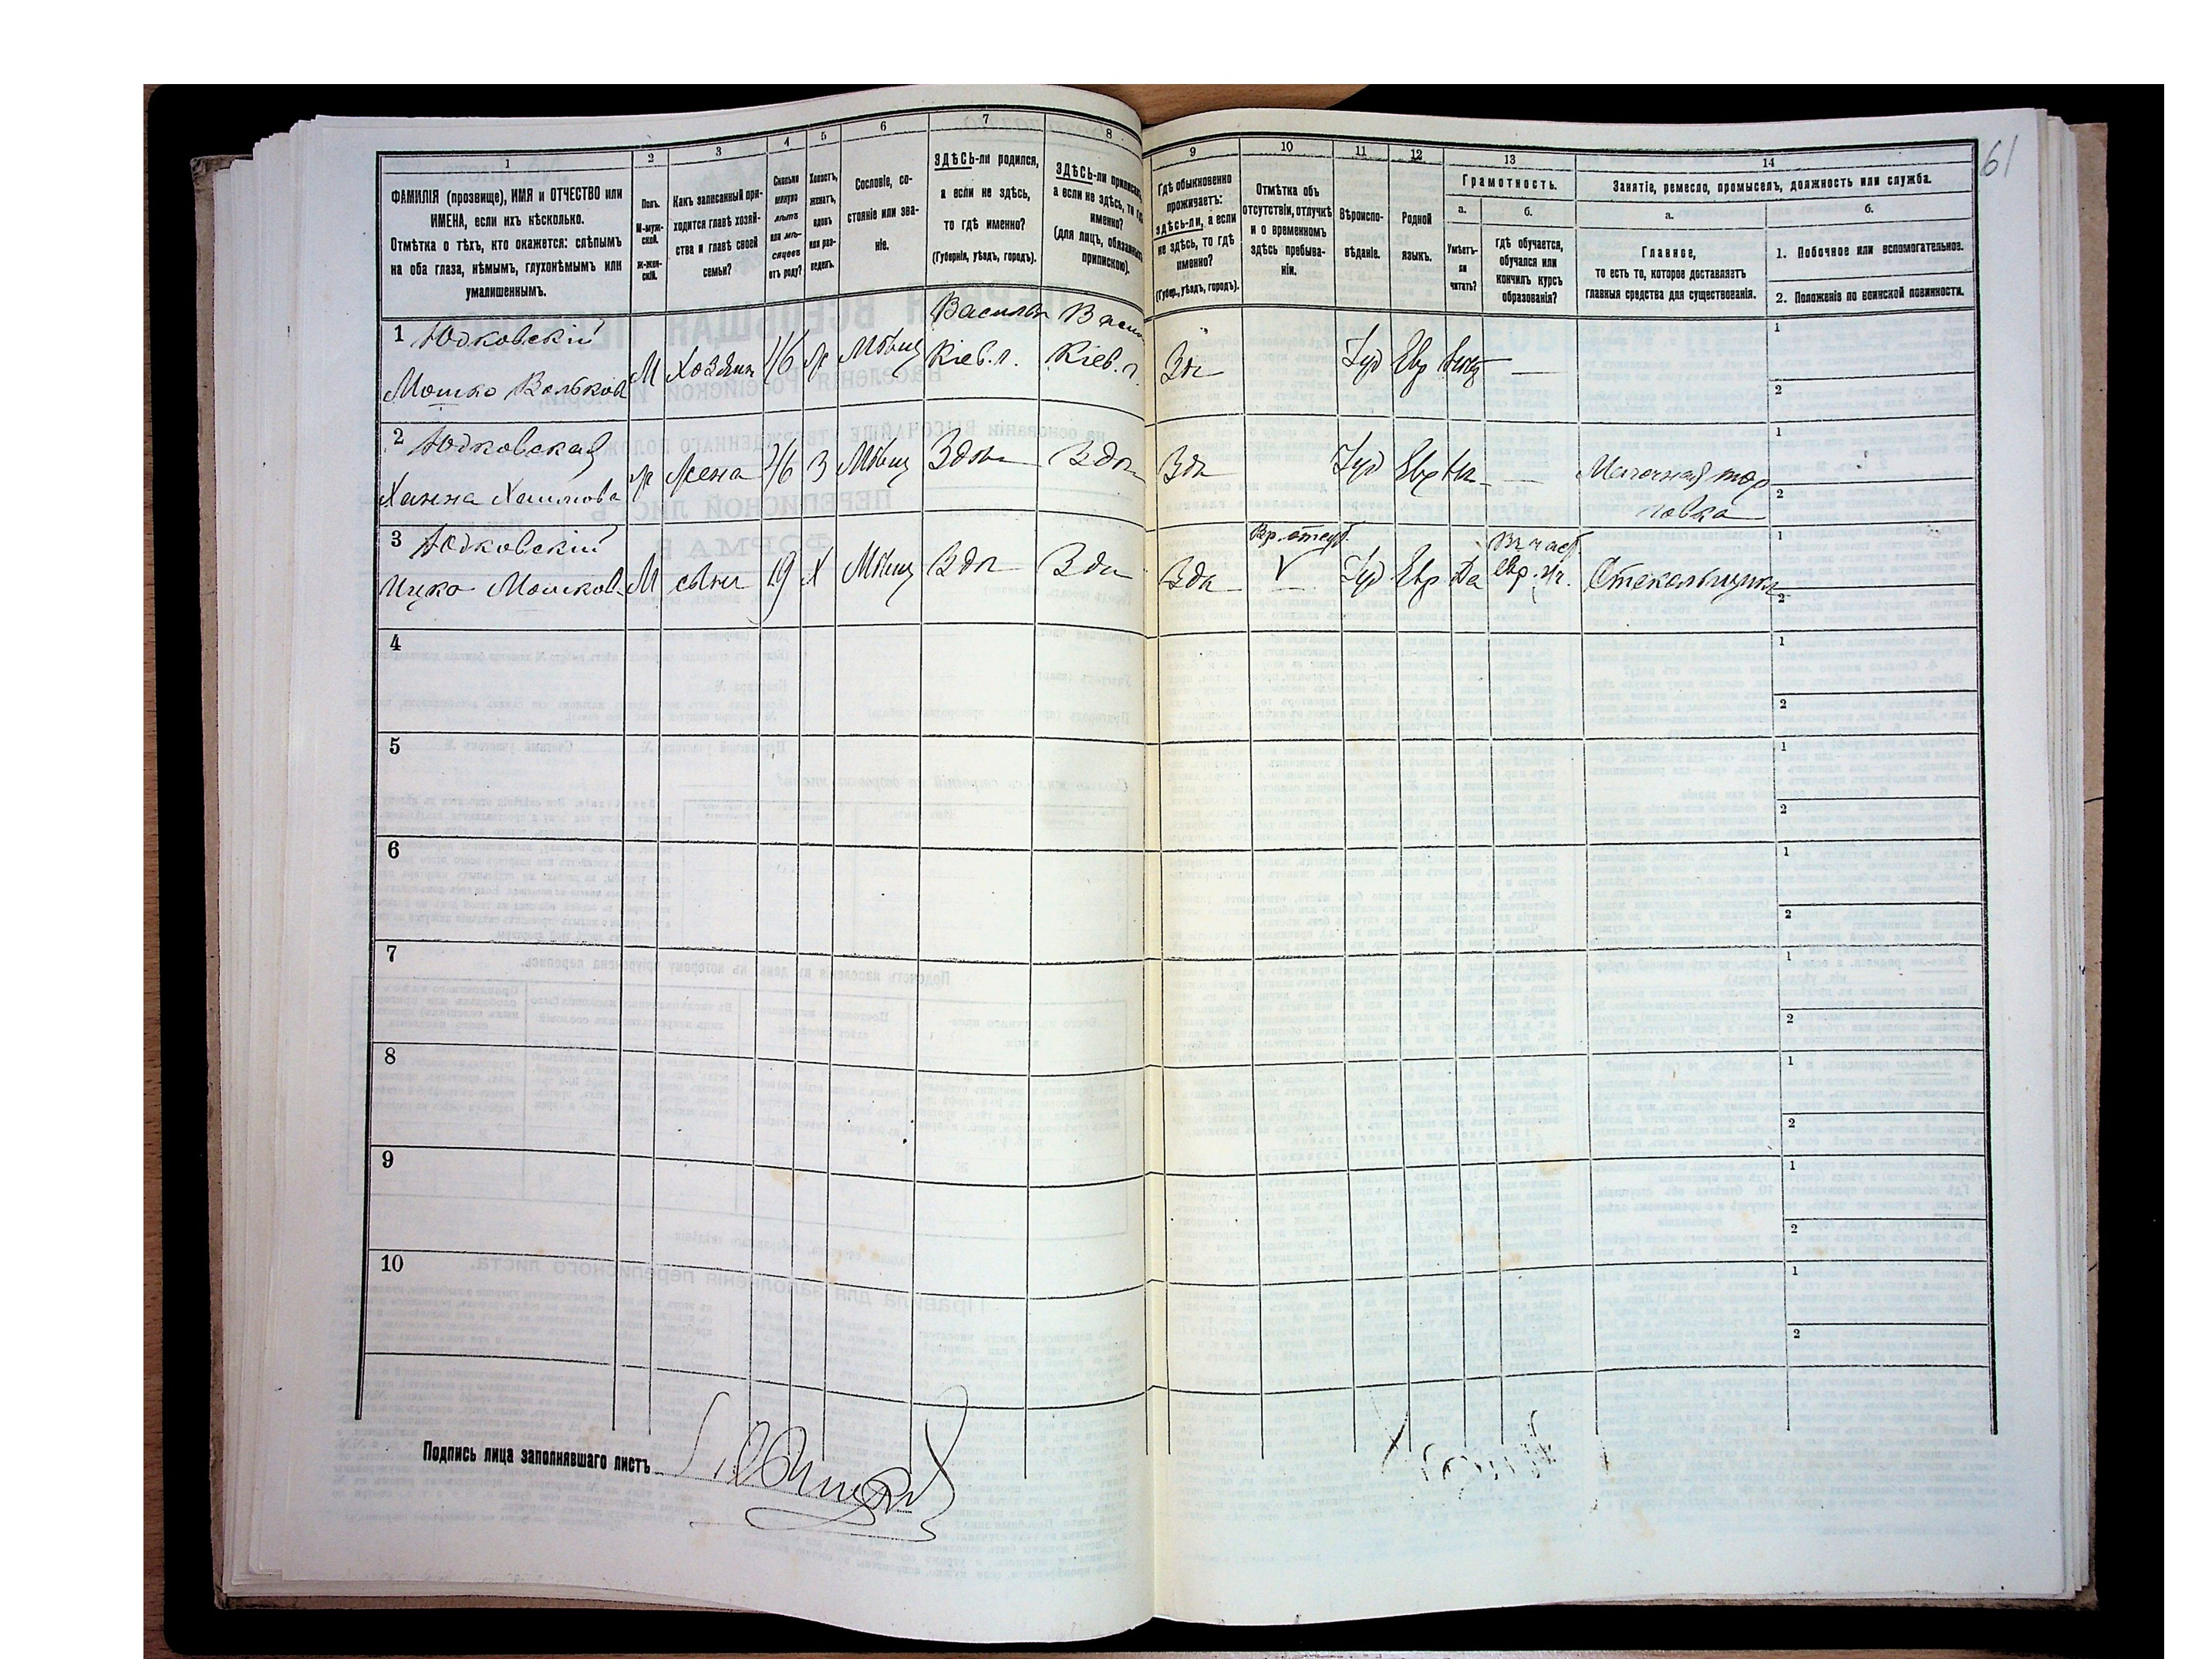 61
1 2 3 4 5 6 7 8
ФАМИЛІЯ (прозвище), ИМЯ и ОТЧЕСТВО или
ИМЕНА, если ихъ нѣсколько.
Отмѣтка о тѣхъ, кто окажется: слѣпымъ
на оба глаза, нѣмымъ, глухонѣмымъ или
умалишеннымъ.
Полъ.
М-муж-
ской.
Ж-жен-
скій.
Какъ записанный при-
ходится главѣ хозяй-
ства и главѣ своей
семьи?
Сколько
минуло
лѣтъ
или мѣ-
сяцевъ
отъ роду?
Холостъ,
женатъ,
вдовъ
или раз-
веденъ.
Сословіе, со-
стояніе или зва-
ніе.
ЗДѢСЬ-ли родился,
а если не здѣсь,
то гдѣ именно?
(Губернія, уѣздъ, городъ).
ЗДѢСЬ-ли приписанъ,
а если не здѣсь, то гдѣ
именно?
(для лицъ, обязанныхъ
припискою).
9 10 11 12 13 14
Гдѣ обыкновенно
проживаетъ:
здѣсь-ли, а если
не здѣсь, то гдѣ
именно?
(Губер., уѣздъ, городъ).
Отмѣтка объ
отсутствіи, отлучкѣ
и о временномъ
здѣсь пребыва-
ніи.
Вѣроиспо-
вѣданіе.
Родной
языкъ.
Грамотность.
а. б.
Умѣетъ-
ли
читать?
гдѣ обучается,
обучался или
кончилъ курсъ
образованія?
Занятіе, ремесло, промыселъ, должность или служба.
а. б.
Главное,
то есть то, которое доставляетъ
главныя средства для существованія.
1. Побочное или вспомогательное.
2. Положеніе по воинской повинности.
1 Юдковскій
Мошко Вольков М Хозяин 46 Ж Мѣщ
Васильк
Кіев. г.
Васил
Кіев. г.
Зд Іуд Евр Нѣт —
1
2
2 Юдковская
Ханна Хаимова ж Жена 46 З Мѣщ Здѣ Здѣ
Здѣ Іуд Евр Нѣ — Мелочная тор
говка
1
2
3 Юдковскій
Ицко Мошков. М сынъ 19 Х Мѣщ Здѣ Здѣ
Здѣ
Вр. отсут.
V
Іуд Евр Да
Въ част.
евр. уч.
Стекольщикъ
1
2
4
1
2
5
1
2
6
1
2
7
1
2
8
1
2
9
1
2
10
1
2
Подпись лица заполнявшаго листъ